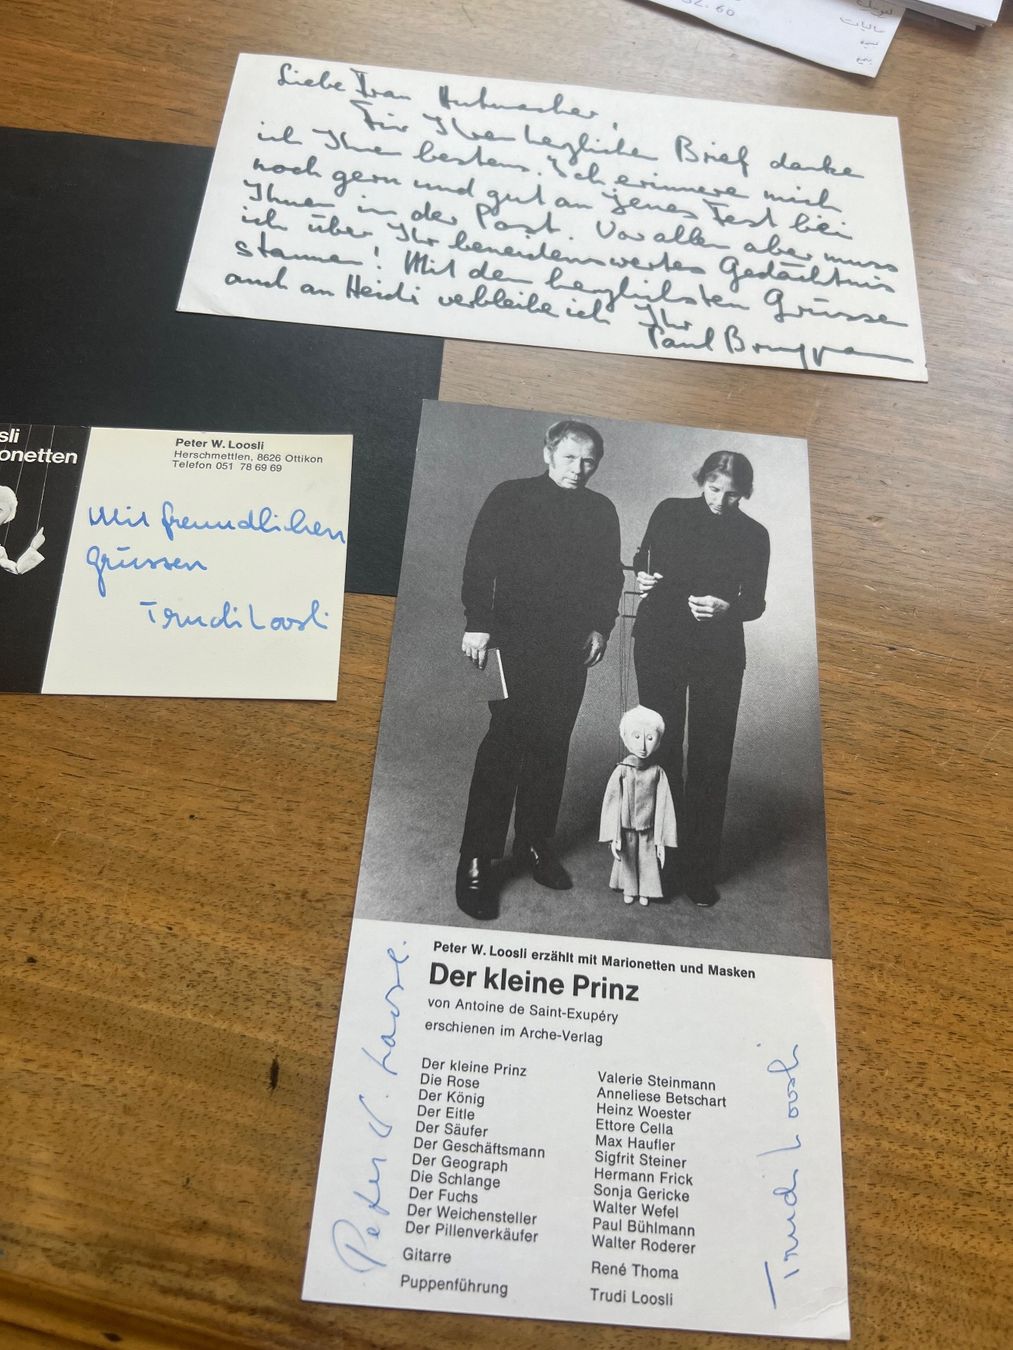 Liebe Frau Hutmacher,
Für Ihren herzlichen Brief danke
ich Ihnen bestens. Ich erinnere mich
noch gern und gut an jenes Fest bei
Ihnen in der Post. Vor allem aber muss
ich über Ihr beneidenswertes Gedächtnis
staunen! Mit den herzlichsten Grüssen
auch an Heidi verbleibe ich Ihr
Paul
sli
onetten
Peter W. Loosli
Herschmettlen, 8626 Ottikon
Telefon 051 78 69 69
Mit freundlichen
Grüssen
Trudi Loosli
Peter W. Loosli erzählt mit Marionetten und Masken
Der kleine Prinz
von Antoine de Saint-Exupéry
erschienen im Arche-Verlag
Der kleine Prinz Valerie Steinmann
Die Rose Anneliese Betschart
Der König Heinz Woester
Der Eitle Ettore Cella
Der Säufer Max Haufler
Der Geschäftsmann Sigfrit Steiner
Der Geograph Hermann Frick
Die Schlange Sonja Gericke
Der Fuchs Walter Wefel
Der Weichensteller Paul Bühlmann
Der Pillenverkäufer Walter Roderer
Gitarre René Thoma
Puppenführung Trudi Loosli
Peter W. Loosli
Trudi Loosli